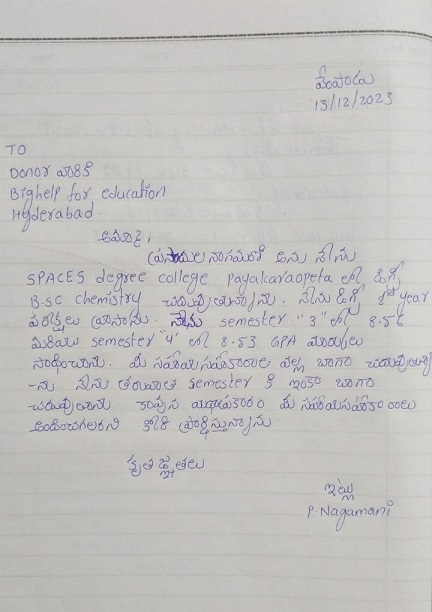 వేంపాడు
13/12/2023
TO
Donor వారికి
Bighelp for education
Hyderabad
అమ్మా,
నాగమణి అను నేను
SPACES degree college Payakaraopeta లో డిగ్రీ
B.SC chemistry చదువుతున్నాను. నేను డిగ్రీ 2nd year
పరీక్షలు వ్రాసాను. నేను semester "3" లో 8.56
మరియు semester "4" లో 8.53 GPA మార్కులు
సాధించాను. మీ సహాయసహకారాల వల్ల బాగా చదువుతున్నా
-ను నేను తరువాత semester కి ఇంకా బాగా
చదువుతాను కావున యథాప్రకారం మీ సహాయసహకారాలు
అందించగలరని కోరి ప్రార్థిస్తున్నాను
కృతజ్ఞతలు
ఇట్లు
P. Nagamani